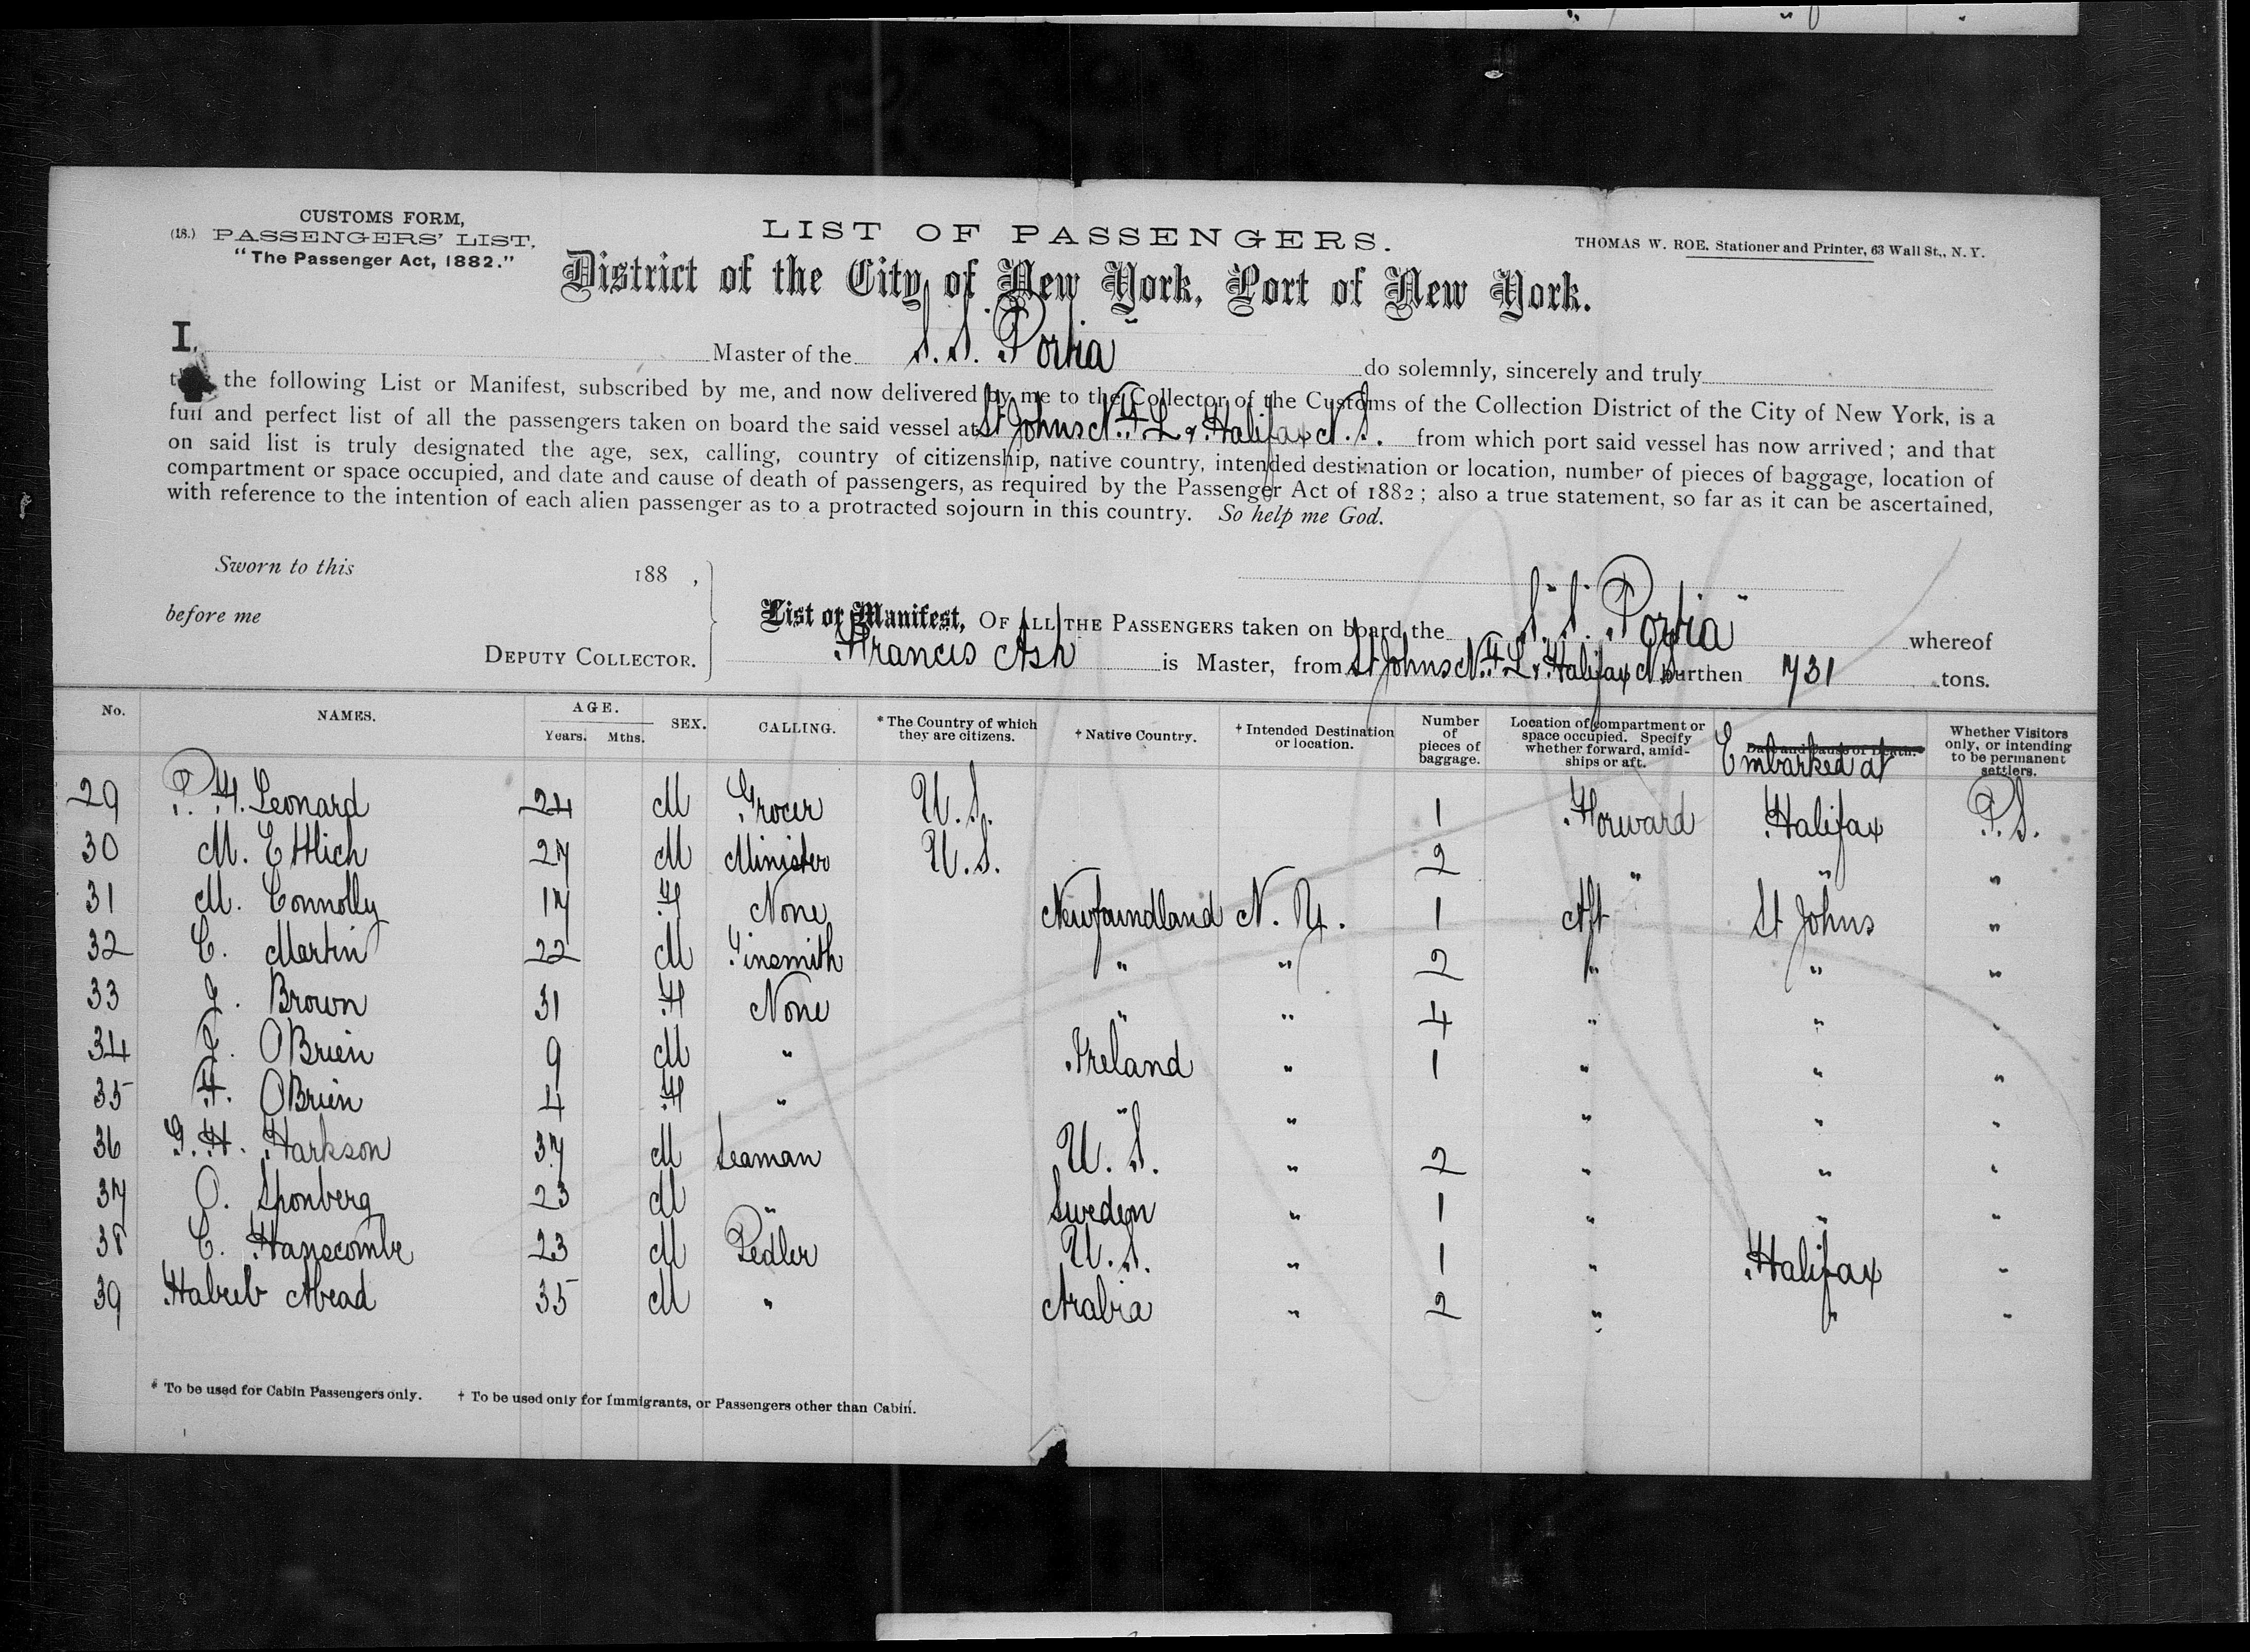 CUSTOMS FORM,
(18.) PASSENGERS' LIST,
"The Passenger Act, 1882."
LIST OF PASSENGERS.
THOMAS W. ROE. Stationer and Printer, 63 Wall St., N. Y.
District of the City of New York, Port of New York.
I, Master of the S.S. "Portia" do solemnly, sincerely and truly
the following List or Manifest, subscribed by me, and now delivered by me to the Collector of the Customs of the Collection District of the City of New York, is a
full and perfect list of all the passengers taken on board the said vessel at St Johns N.F.L & Halifax N.S. from which port said vessel has now arrived; and that
on said list is truly designated the age, sex, calling, country of citizenship, native country, intended destination or location, number of pieces of baggage, location of
compartment or space occupied, and date and cause of death of passengers, as required by the Passenger Act of 1882; also a true statement, so far as it can be ascertained,
with reference to the intention of each alien passenger as to a protracted sojourn in this country. So help me God.
Sworn to this 188 ,
before me
DEPUTY COLLECTOR.
List or Manifest, OF ALL THE PASSENGERS taken on board the S.S. "Portia" whereof
Francis Ash is Master, from St Johns N.F.L & Halifax N.S. burthen 731 tons.
No. NAMES. AGE. Years. Mths. SEX. CALLING. *The Country of which they are citizens. † Native Country. † Intended Destination or location. Number of pieces of baggage. Location of compartment or space occupied. Specify whether forward, amidships or aft. Date and Cause of Death. Embarked at Whether Visitors only, or intending to be permanent settlers.
29 P. F. Leonard 24 M Grocer U.S. 1 Forward Halifax P.S.
30 M. Ettlich 27 M Minister U.S. 2 " " "
31 M. Connolly 17 F None Newfoundland N.Y. 1 Aft St Johns "
32 C. Martin 22 M Tinsmith " " 2 " " "
33 J. Brown 31 F None " " 4 " " "
34 J. OBrien 9 M " Ireland " 1 " " "
35 F. OBrien 4 F " " " " " "
36 G. H. Harkson 37 M Seaman U.S. " 2 " " "
37 O. Sponberg 23 M " Sweden " 1 " " "
38 C. Hanscombe 23 M Pedler U.S. " 1 " Halifax "
39 Habeeb Abead 35 M " Arabia " 2 " " "
* To be used for Cabin Passengers only. † To be used only for Immigrants, or Passengers other than Cabin.